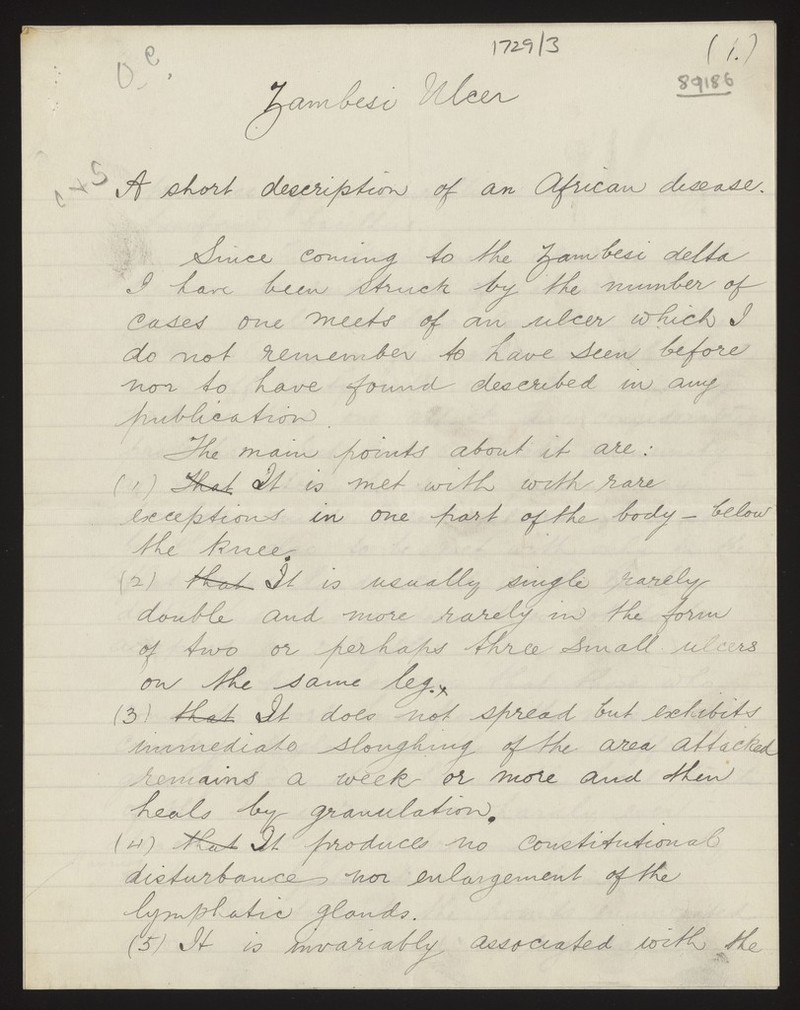 1729/3
(1.)
89186
Zambesi Ulcer
A short description of an African disease.
Since coming to the Zambesi delta
I have been struck by the number of
cases one meets of an ulcer which I
do not remember to have seen before
nor to have found described in any
publication.
The main points about it are:
(1) That It is met with with rare
exceptions in one part of the body – below
the knee.
(2) that It is usually single rarely
double and more rarely in the form
of two or perhaps three small ulcers
on the same leg.
(3) that It does not spread but exhibits
immediate sloughing of the area attacked
remains a week or more and then
heals by granulation.
(4) that It produces no constitutional
disturbance nor enlargement of the
lymphatic glands.
(5) It is invariably associated with the